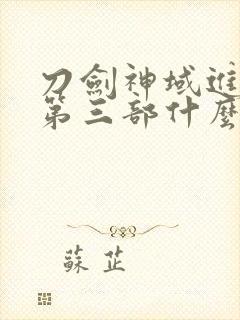 刀劍神域進
第三部什麼
蘇芷